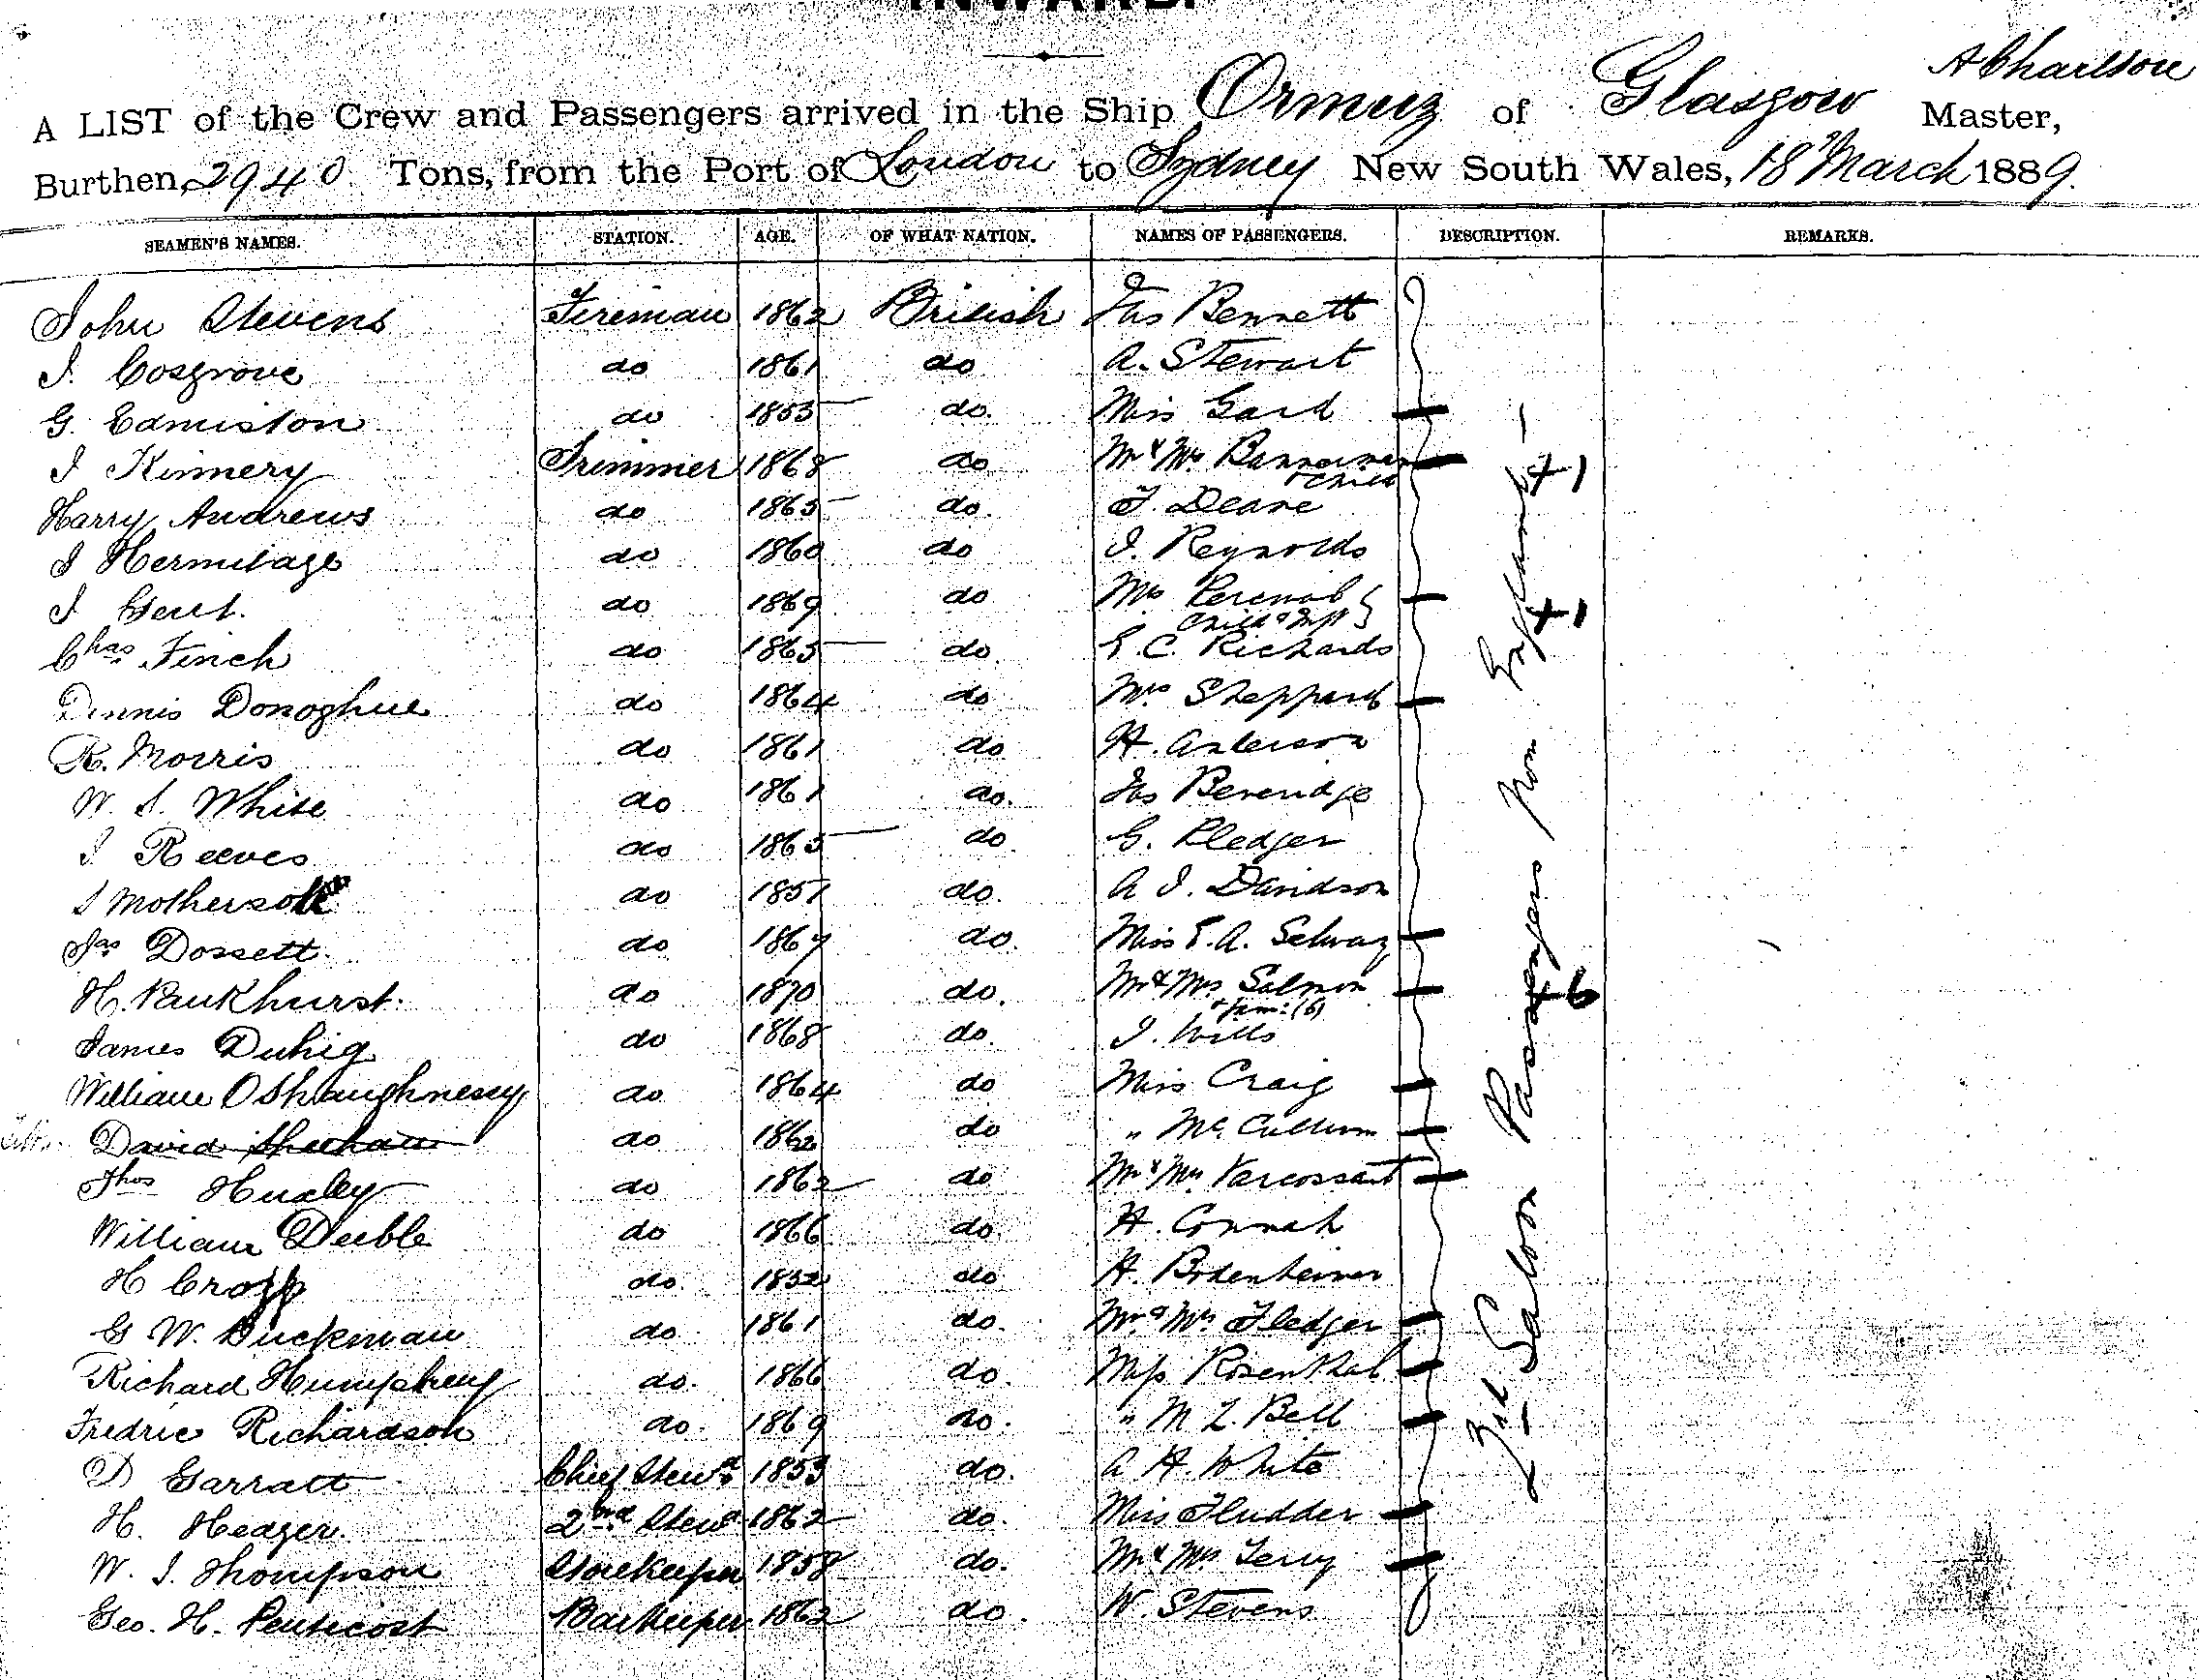 INWARD.
A Charlson
A LIST of the Crew and Passengers arrived in the Ship Ormuz of Glasgow Master,
Burthen, 2940 Tons, from the Port of London to Sydney New South Wales, 18 March 1889.
SEAMEN'S NAMES. STATION. AGE. OF WHAT NATION. NAMES OF PASSENGERS. DESCRIPTION. REMARKS.
John Stevens Fireman 1862 British Jas Bennett
J. Cosgrove do 1861 do A. Stewart
G. Edmiston do 1853 do. Miss Gard
J Kinnery Trimmer 1868 do Mr & Mrs Bannerman + 1
& child
Harry Andrews do 1865 do. F. Deane
J Hermitage do 1860 do J. Reynolds
J Gent. do 1869 do Mrs Percival + 1
child & Inft
Chas Finch do 1865 do E. C. Richards
Dennis Donoghue do 1864 do Mrs Sheppard
R. Morris do 1861 do H. Anderson
W. J. White do 1861 do. Jas Beveridge
J Reeves do 1865 do G. Pledger
J Mothersole do 1857 do. A J. Davidson
Jas Dossett do 1867 do. Miss E. A. Schwaz
H. Pankhurst. do 1870 do. Mr & Mrs Salmon + 6
& fam: (6)
James Duhig do 1868 do. J. Wills
William OShaughnessy do 1864 do Miss Craig
David Sheehan do 1862 do " Mc Cullum
Thos Huxley do 1862 do Mr & Mrs
William Deeble do 1866 do H. Connah
H Cropp do. 1852 do H. Bodenheimer
G W. Duckman do 1861 do. Mr & Mrs Fledger
Richard Humphrey do. 1866 do. Miss Rosenthal
Fredric Richardson do. 1869 do. " M L. Bell
D Garratt Chief Stewd 1853 do. A H. White
H. Hedger. 2nd Stewd 1862 do. Miss Fludder
W. J. Thompson Storekeeper 1858 do. Mr & Mrs Terry
Geo. H. Pentecost Barkeeper 1862 do. W. Stevens
2nd Saloon Passengers from England